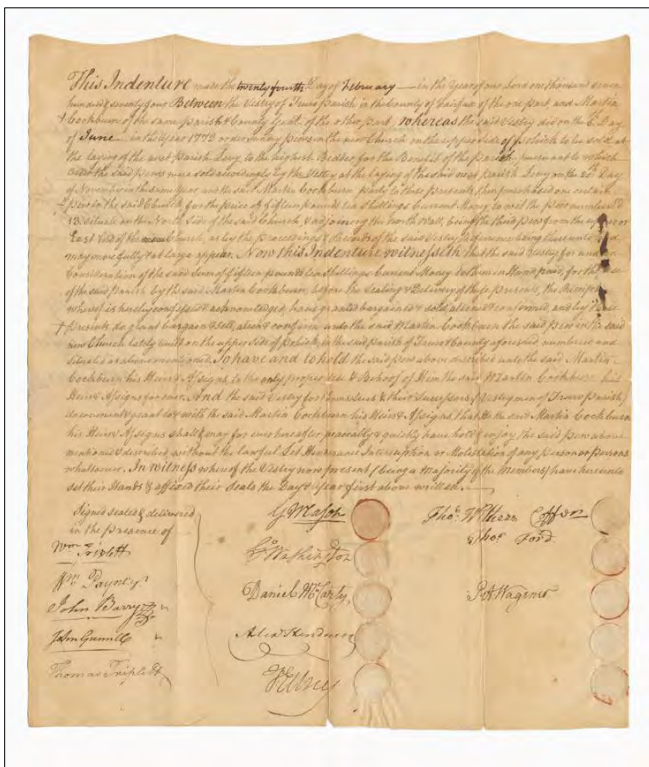 This Indenture made the twentyfourth Day of February in the Year of our Lord one thousand seven
hundred & seventy four Between the Vestry of Truro Parish in the County of Fairfax of the one part, and Martin
Cockburn of the same Parish & County Gent. of the other part whereas the said Vestry did on the Day
of June in the Year 1772 order Sundry pews in the new Church on the upper side of Pohick to be sold, at
the laying of the next Parish Levy, to the highest Bidder for the Benefit of the parish, pursuant to which
Order the said pews were sold accordingly by the Vestry at the laying of the said next parish Levy on the 20th Day
of November in the same Year and the said Martin Cockburn party to these presents, then purchased one certain
pew in the said Church for the price of fifteen pounds ten shillings Current Money to wit the pew number'd
13. situate on the North Side of the said Church, & adjoining the North Wall, being the third pew from the
East End of the Church, as by the proceedings & Records of the said Vestry Reference being thereunto had
may more fully & at large appear. Now this Indenture witnesseth that the said Vestry for and in
Consideration of the said Sum of fifteen pounds ten shillings Current Money to them in Hand paid, for the Use
of the said Parish by the said Martin Cockburn, before the Sealing & Delivery of these presents, the Receipt
whereof is hereby confessed & acknowledged, have granted bargained & sold, aliened & confirmed, and by these
presents do grant bargain & sell, alien & confirm unto the said Martin Cockburn the said pew in the said
new Church lately built on the upper side of Pohick, in the said parish of Truro & County aforesaid, numbered and
situated as above mentioned. To have and to hold the said pew above described unto the said Martin
Cockburn his Heirs & Assigns to the only proper Use & Behoof of Him the said Martin Cockburn his
Heirs & Assigns for ever. And the said Vestry for themselves & their Successors (Vestrymen of Truro Parish)
do covenant & grant to & with the said Martin Cockburn his Heirs & Assigns that He the said Martin Cockburn
his Heirs & Assigns shall & may for ever hereafter, peaceably & quietly have hold & enjoy the said pew above
mentioned & described, without the lawful Let Hinderance Interruption or Molestation of any person or persons
whatsoever. In witness whereof the Vestry now present (being a Majority of the Members) have hereunto
set their Hands & affixed their Seals the Day & Year first above written.
Signed sealed & delivered
in the presence of
Wm Triplett
Wm Payne
John Barry
John Gunnell
Thomas Triplett
G Mason
Go Washington
Daniel McCarty
Alex Henderson
Thos Withers Coffer
Thos Ford
P. Wagener